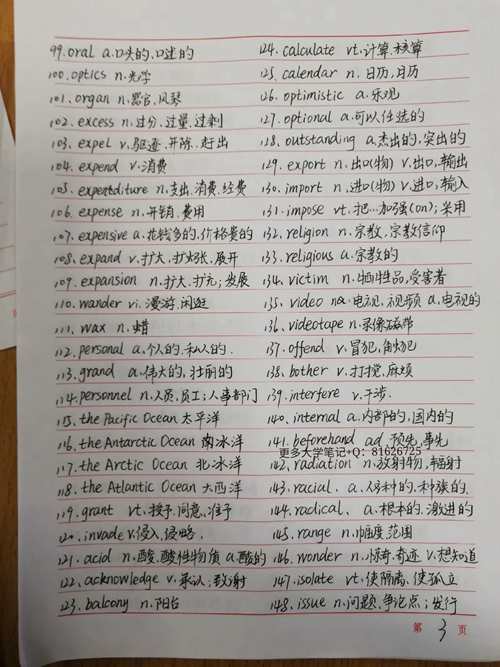 99. oral a.口头的,口述的
100. optics n.光学
101. organ n.器官,风琴
102. excess n.过分,过量,过剩
103. expel v.驱逐,开除,赶出
104. expend v.消费
105. expenditure n.支出,消费,经费
106. expense n.开销,费用
107. expensive a.花钱多的,价格贵的
108. expand v.扩大,扩张,展开
109. expansion n.扩大,扩充;发展
110. wander vi.漫游,闲逛
111. wax n.蜡
112. personal a.个人的,私人的.
113. grand a.伟大的,壮丽的
114. personnel n.人员,员工;人事部门
115. the Pacific Ocean 太平洋
116. the Antarctic Ocean 南冰洋
117. the Arctic Ocean 北冰洋
118. the Atlantic Ocean 大西洋
119. grant vt.授予,同意,准予
120. invade v.侵入,侵略.
121. acid n.酸,酸性物质 a.酸的
122. acknowledge v.承认;致谢
123. balcony n.阳台
124. calculate vt.计算,核算
125. calendar n.日历,月历
126. optimistic a.乐观
127. optional a.可以任选的
128. outstanding a.杰出的,突出的
129. export n.出口(物) v.出口,输出
130. import n.进口(物) v.进口,输入
131. impose vt.把…加强(on);采用
132. religion n.宗教,宗教信仰
133. religious a.宗教的
134. victim n.牺牲品,受害者
135. video n.电视,视频 a.电视的
136. videotape n.录像磁带
137. offend v.冒犯,触犯
138. bother v.打搅,麻烦
139. interfere v.干涉.
140. internal a.内部的,国内的
141. beforehand ad.预先,事先
更多大学笔记+Q: 81626725
142. radiation n.放射物,辐射
143. racial. a.人种的,种族的.
144. radical. a.根本的,激进的
145. range n.幅度,范围
146. wonder n.惊奇,奇迹 v.想知道
147. isolate vt.使隔离,使孤立
148. issue n.问题,争论点;发行
第 3 页